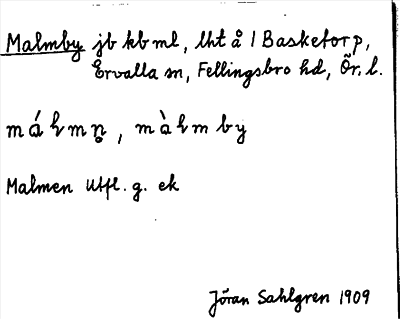 Malmby jb kb ml, lht å 1 Basketorp,
Ervalla sn, Fellingsbro hd, Ör. l.
málmn̥, màlm by
Malmen Utfl. g. ek
Jöran Sahlgren 1909